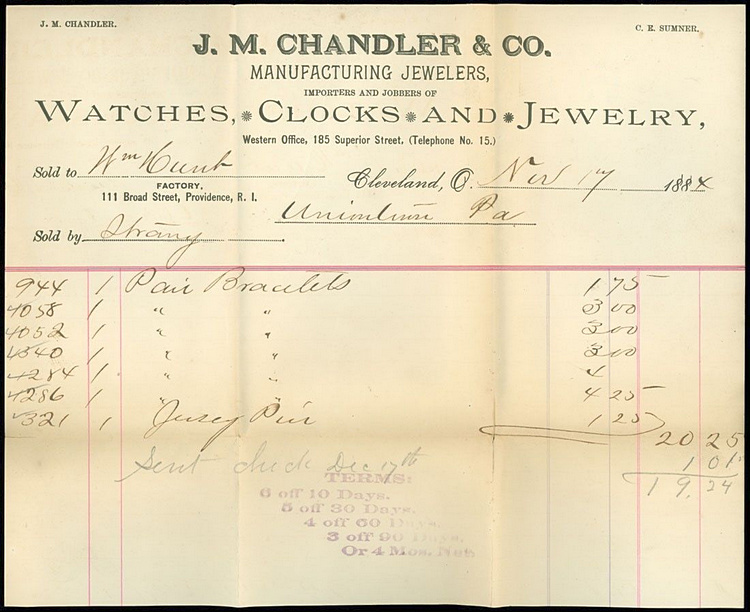 J. M. CHANDLER. C. E. SUMNER.
J. M. CHANDLER & CO.
MANUFACTURING JEWELERS,
IMPORTERS AND JOBBERS OF
WATCHES, CLOCKS AND JEWELRY,
Western Office, 185 Superior Street, (Telephone No. 15.)
Sold to Wm Hunt
Cleveland, O. Nov 17 1884
FACTORY,
111 Broad Street, Providence, R. I.
Uniontown Pa
Sold by Strang
944 1 Pair Bracelets 1 75
4058 1 " " 3 00
4052 1 " " 3 00
4340 1 " " 3 00
4284 1 " " 4
4286 1 " " 4 25
4321 1 Jersey Pin 1 25
20 25
1 01
19.24
Sent check Dec 17th
TERMS:
6 off 10 Days.
5 off 30 Days.
4 off 60 Days.
3 off 90 Days.
Or 4 Mos. Net.